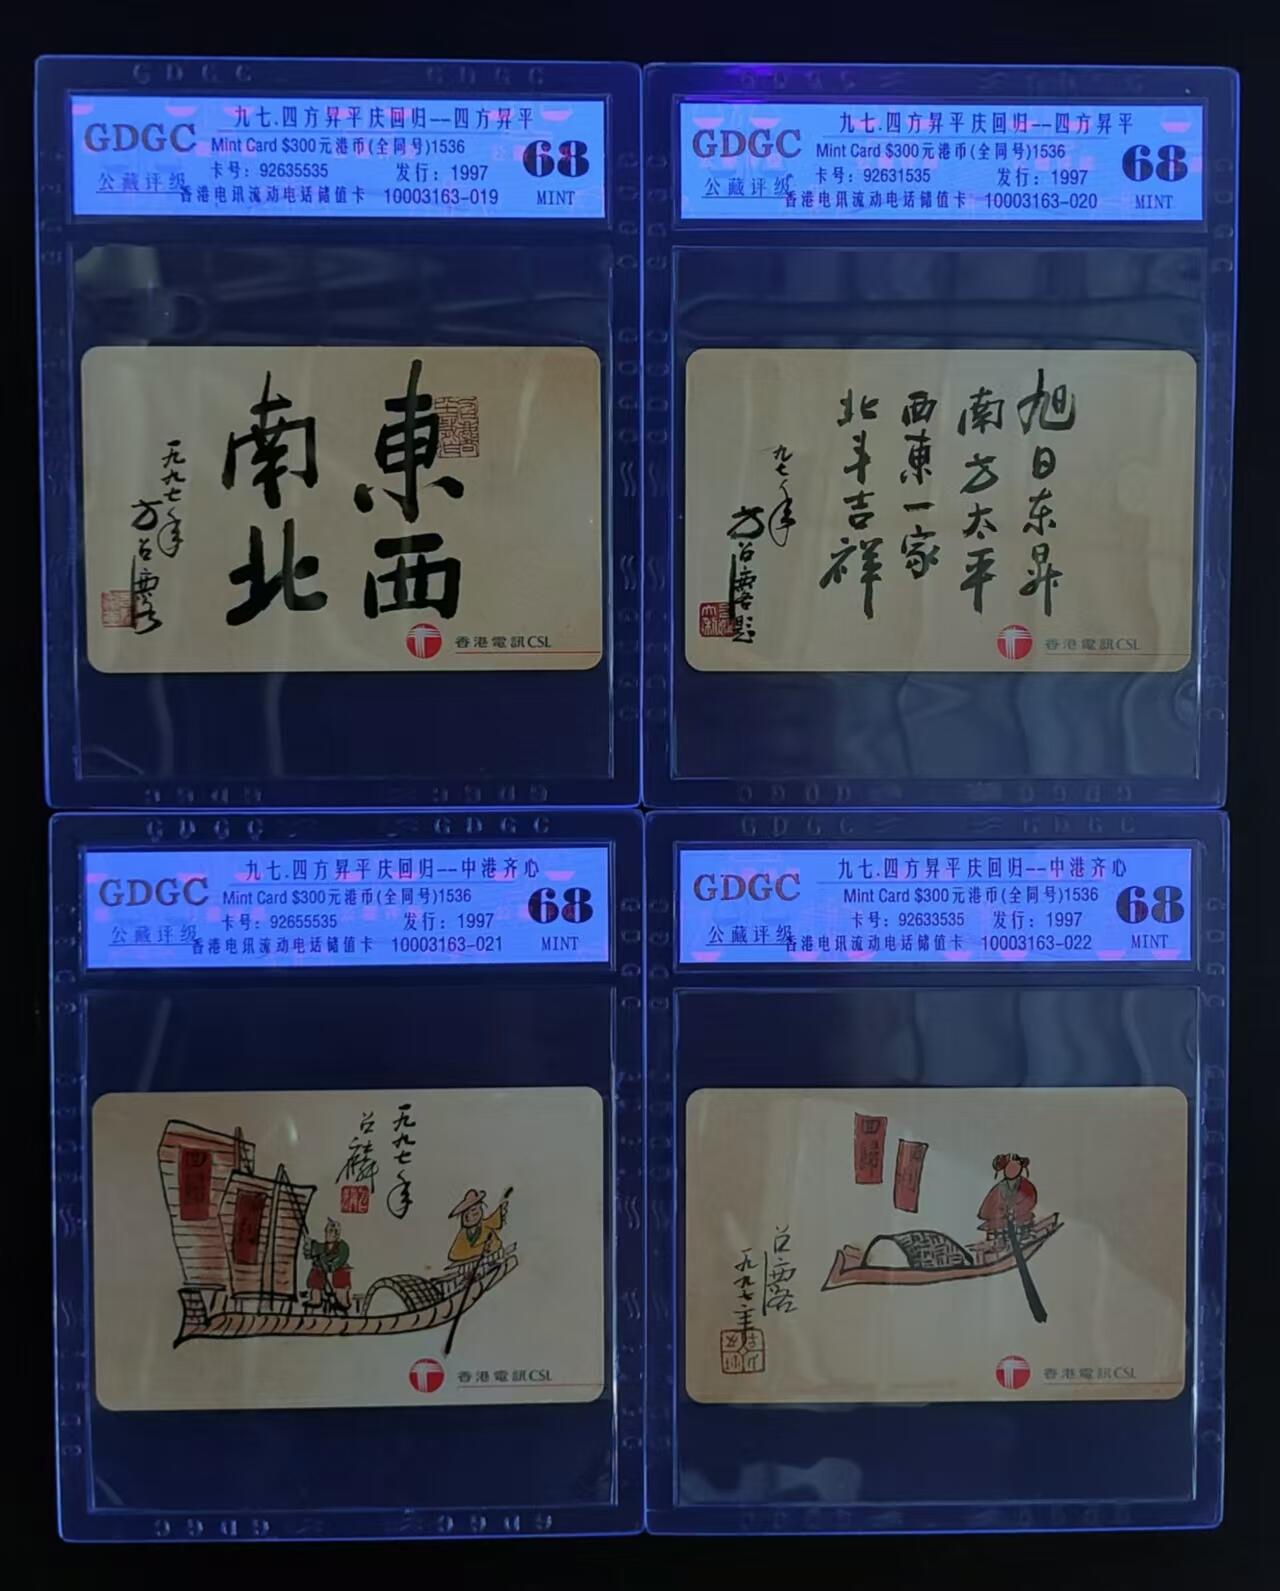 GDGC GDGC
九七.四方昇平庆回归--四方昇平
GDGC
Mint Card $300元港币(全同号)1536
68
卡号：92635535 发行：1997
公藏评级
香港电讯流动电话储值卡 10003163-019
MINT
東西
南北
一九九七年
香港電訊CSL
九七.四方昇平庆回归--四方昇平
GDGC
Mint Card $300元港币(全同号)1536
68
卡号：92631535 发行：1997
公藏评级
香港电讯流动电话储值卡 10003163-020
MINT
旭日东昇
南方太平
西東一家
北斗吉祥
九七年
方召麐題
香港電訊CSL
GDGC GDGC
九七.四方昇平庆回归--中港齐心
GDGC
Mint Card $300元港币(全同号)1536
68
卡号：92655535 发行：1997
公藏评级
香港电讯流动电话储值卡 10003163-021
MINT
一九九七年
召麐
回歸
香港電訊CSL
九七.四方昇平庆回归--中港齐心
GDGC
Mint Card $300元港币(全同号)1536
68
卡号：92633535 发行：1997
公藏评级
香港电讯流动电话储值卡 10003163-022
MINT
回歸
召麐
一九九七年
香港電訊CSL